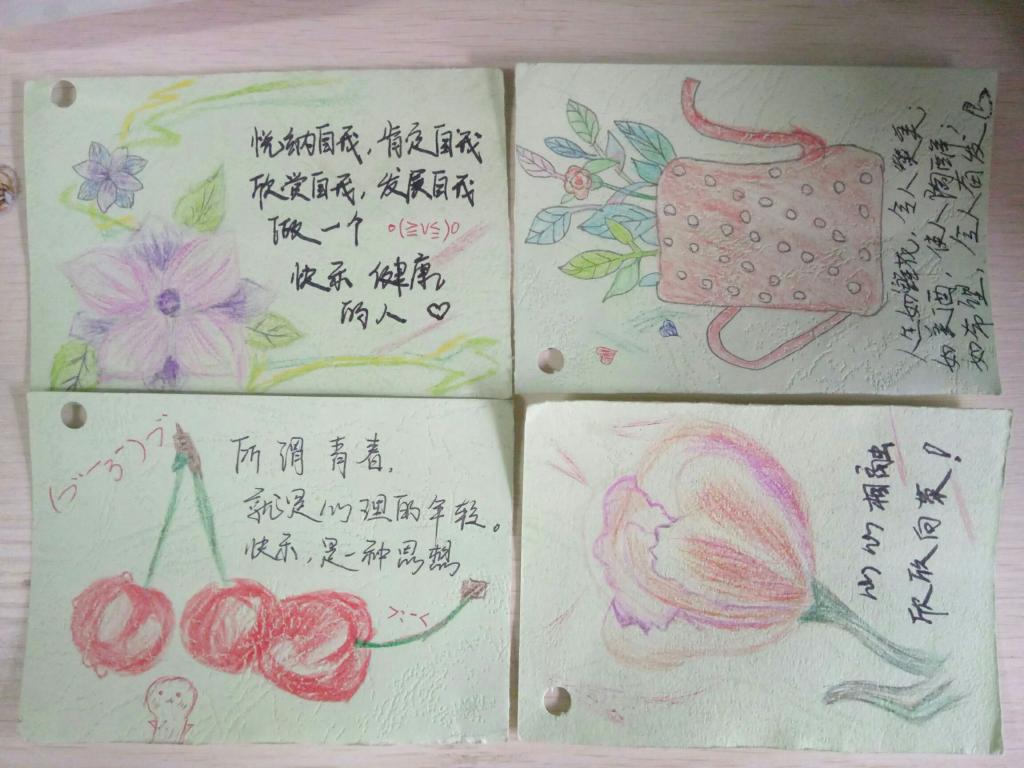 悦纳自我，肯定自我
欣赏自我，发展自我
做一个 o(≧v≦)o
快乐 健康
的人 ♡
人生如鲜花，令人赞美；
如美酒，使人陶醉；
如希望，令人奋发。
所谓青春，
就是心理的年轻。
快乐，是一种思想
心心相融
欣欣向荣！